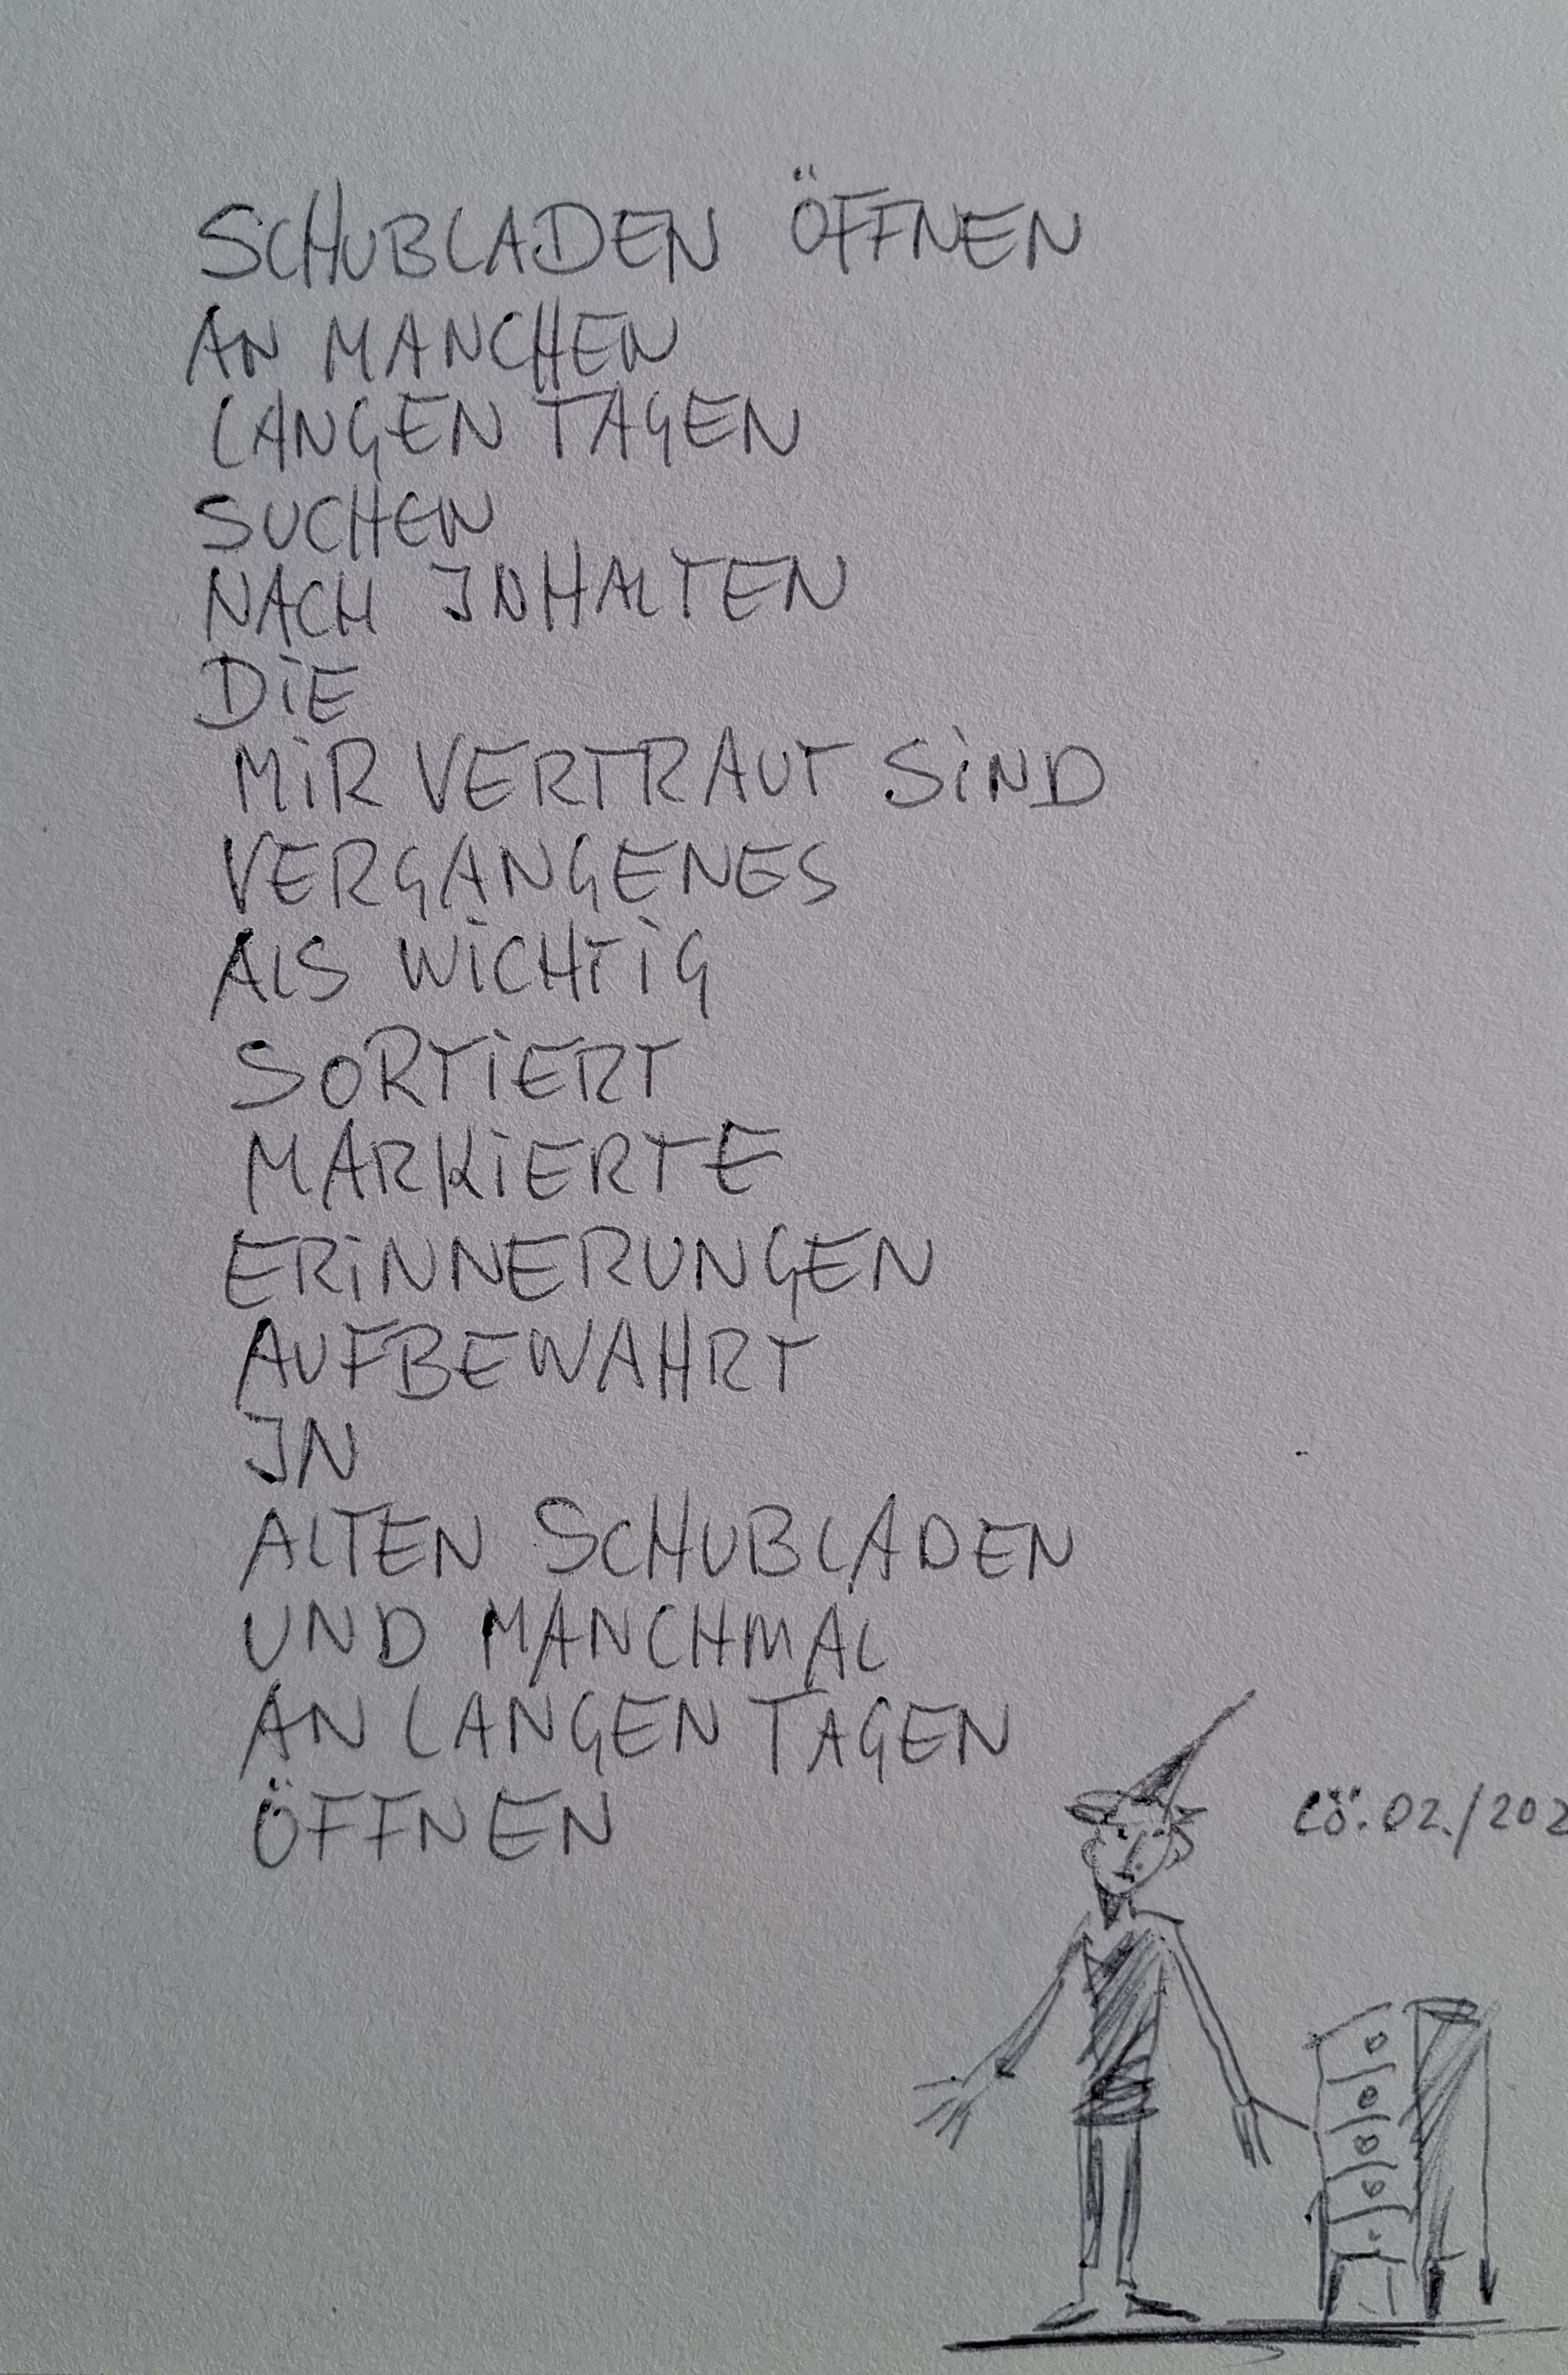 SCHUBLADEN ÖFFNEN
AN MANCHEN
LANGEN TAGEN
SUCHEN
NACH INHALTEN
DIE
MIR VERTRAUT SIND
VERGANGENES
ALS WICHTIG
SORTIERT
MARKIERTE
ERINNERUNGEN
AUFBEWAHRT
IN
ALTEN SCHUBLADEN
UND MANCHMAL
AN LANGEN TAGEN
ÖFFNEN
Cö. 02./202